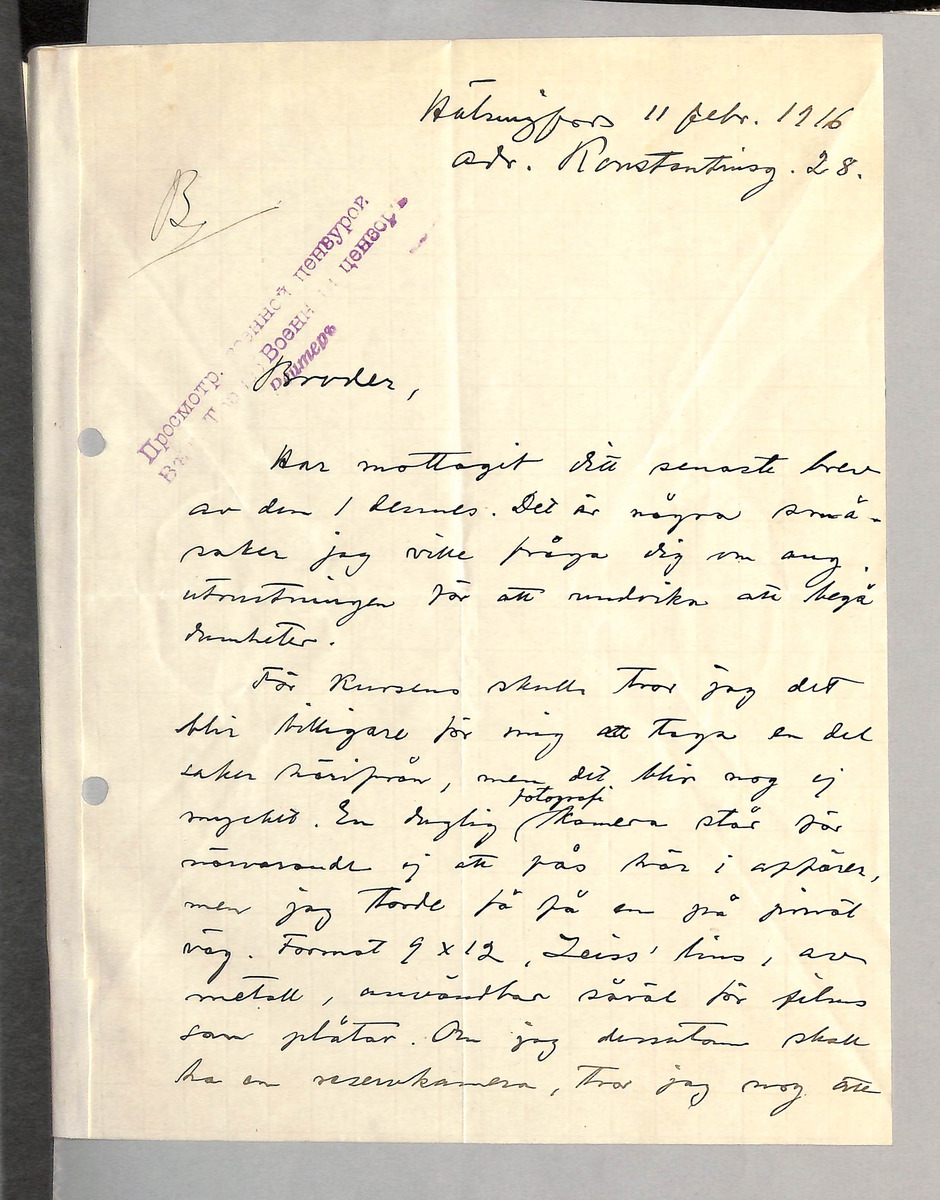 Hälsingfors 11 febr. 1916
adr. Konstantinsg. 28.
B
Просмотр. военной цензурой
Военный цензоръ
Broder,
Har mottagit ditt senaste brev
av den 1 dennes. Det är några små-
saker jag ville fråga dig om ang.
utrustningen för att undvika att begå
dumheter.
För kursens skull tror jag det
blir billigare för mig att taga en del
saker härifrån, men det blir nog ej
fotografi
mycket. En duglig kamera står för
närvarande ej att fås här i affärer,
men jag torde få få en på privat
väg. Format 9 x 12, Zeiss' lins, av
metall, användbar såväl för films
som plåtar. Om jag dessutom skall
ha en reservkamera, tror jag nog att